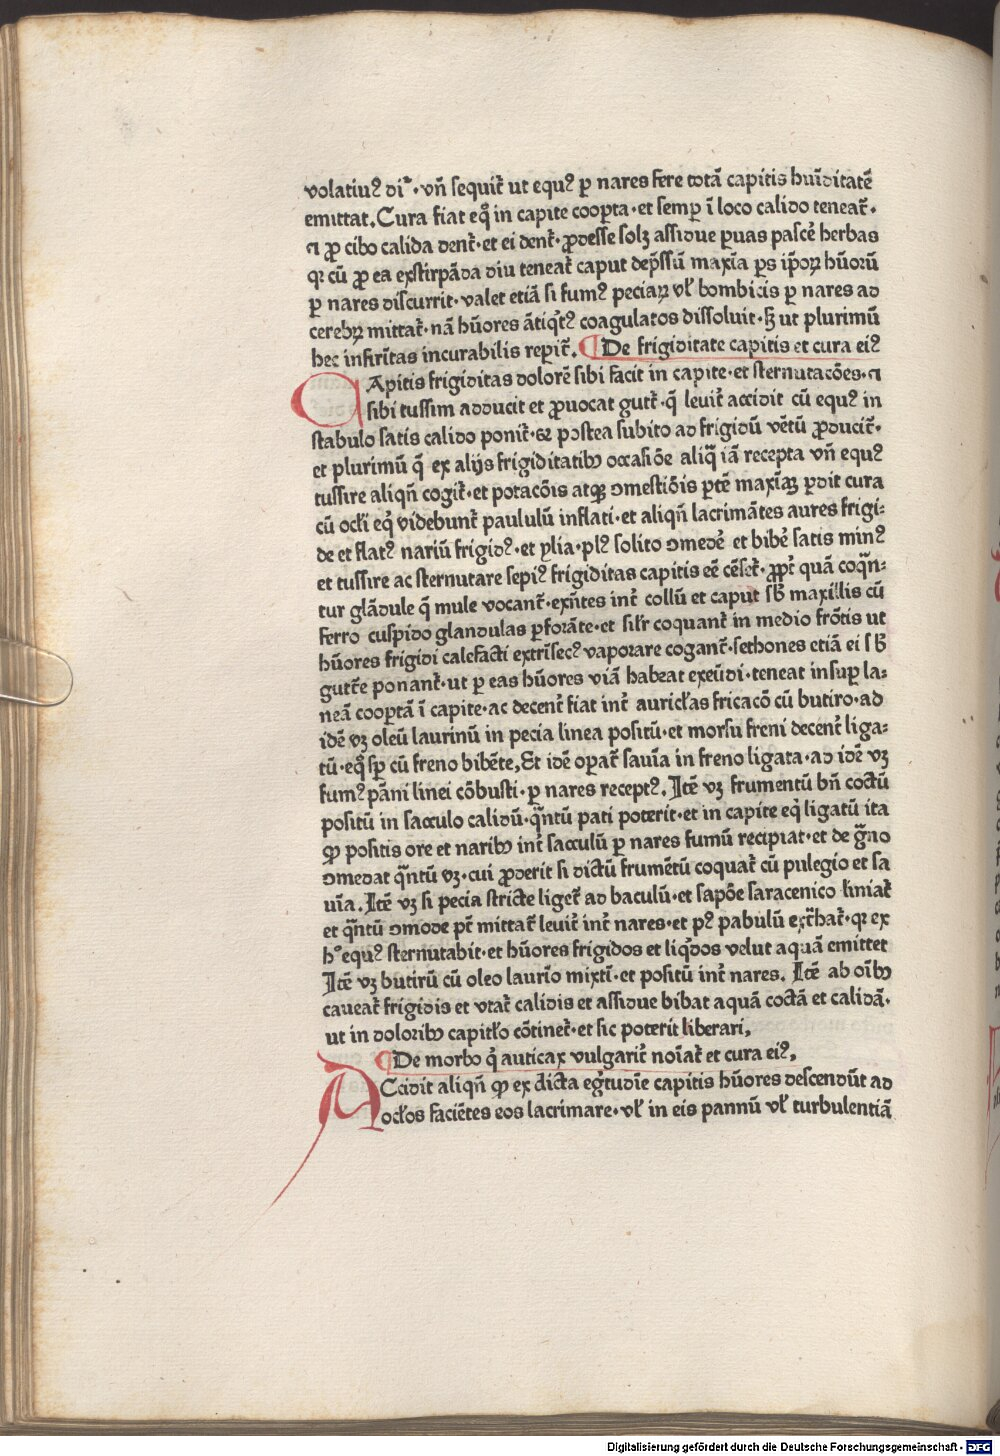 volatiuꝰ diͬ · vn̄ sequit᷑ ut equꝰ ꝑ nares fere totā capitis huīditatē
emittat. Cura fiat eqͦ in capite cooꝑta · et semꝑ ī loco calido teneat᷑ ·
⁊ ꝓ cibo calida dent᷑ · et ei dent᷑ · ꝓdesse solꝫ assidue ꝑuas pascē herbas
qꝛ cū ꝓ ea exstirpāda diu teneat᷑ caput dep̄ssū maxīa ꝑs ip̄oꝝ hūorū
ꝑ nares discurrit · valet etiā si fumꝰ peciaꝝ vł bombicis ꝑ nares ad
cerebꝝ mittat᷑ · nā hūores ātiqͥtꝰ coagulatos dissoluit · sꝫ ut plurimū
hec infirītas incurabilis reperit᷑. ¶ De frigiditate capitis et cura eiꝰ
CApitis frigiditas dolorē sibi facit in capite · et sternutacōes · ⁊
sibi tussim adducit et ꝓuocat gutt᷑ · q̄ leuit᷑ accidit cū equꝰ in
stabulo satis calido ponit᷑ · ⁊ postea subito ad frigidū vētū ꝓducit᷑ ·
et plurimū q̄ ex alijs frigiditatibꝫ occasiōe aliqͣ iā recepta vn̄ equꝰ
tussire aliqn̄ cogit᷑ · et potacōis atqꝫ ꝯmestiōis ꝑtē maxīaꝫ ꝑdit cura
cū ocłi eqͥ videbunt᷑ paululū inflati · et aliqn̄ lacrimātes aures frigi⸗
de et flatꝰ nariū frigidꝰ · et ylia · plꝰ solito ꝯmedē et bibē satis minꝰ
et tussire ac sternutare sepiꝰ frigiditas capitis eē cēset᷑ · ꝓpt᷑ quā coqͣn⸗
tur glādule q̄ mule vocant᷑ · exn̄tes int᷑ collū et caput sƀ maxillis cū
ferro cuspido glandulas ꝑforāte · et sil̄r coquant᷑ in medio frōtis ut
hūores frigidi calefacti extrīsecꝰ vaporare cogant᷑ · sethones etiā ei sƀ
gutt᷑e ponant᷑ · ut ꝑ eas hūores viā habeat exeūdi · teneat insuꝑ la⸗
neā cooꝑtā ī capite · ac decent᷑ fiat int᷑ auricłas fricacō cū butiro · ad
idē vꝫ oleū laurinū in pecia linea positū · et morsu freni decent᷑ liga⸗
tū · eqͦ sꝑ cū freno bibēte, Et idē oꝑat᷑ sauīa in freno ligata · ad idē vꝫ
fumꝰ pāni linei cōbusti · ꝑ nares receptꝰ. Itē vꝫ frumentū bn̄ coctū
positū in sacculo calidū · qͣntū pati poterit · et in capite eqͥ ligatū ita
ꝙ positis ore et naribꝫ int᷑ sacculū ꝑ nares fumū recipiat · et de gͣno
ꝯmedat qͣntū vꝫ · cui ꝓderit si dictū frumētū coquat᷑ cū pulegio et sa
uīa. Itē vꝫ si pecia stricte liget᷑ ad baculū · et sapōe saracenico liniat᷑
et qͣntū ꝯmode pt̄ mittat᷑ leuit᷑ int᷑ nares · et pꝰ pabulū ext᷑hat᷑ · qꝛ ex
hͦ equꝰ sternutabit · et hūores frigidos et liqͥdos velut aquā emittet
Itē vꝫ butirū cū oleo laurīo mixtī · et positū int᷑ nares. Itē ab oībꝫ
caueat᷑ frigidis et vtat᷑ calidis et assidue bibat aquā coctā et calidā ·
ut in doloribꝫ capitło cōtinet᷑ · et sic poterit liberari,
¶ De morbo qͥ auticax vulgarit᷑ noīat᷑ et cura eiꝰ,
ACcidit aliqn̄ ꝙ ex dicta egͥtudīe capitis hūores descendūt ad
ocłos faciētes eos lacrimare · vł in eis pannū vł turbulentiā
Digitalisierung gefördert durch die Deutsche Forschungsgemeinschaft - DFG